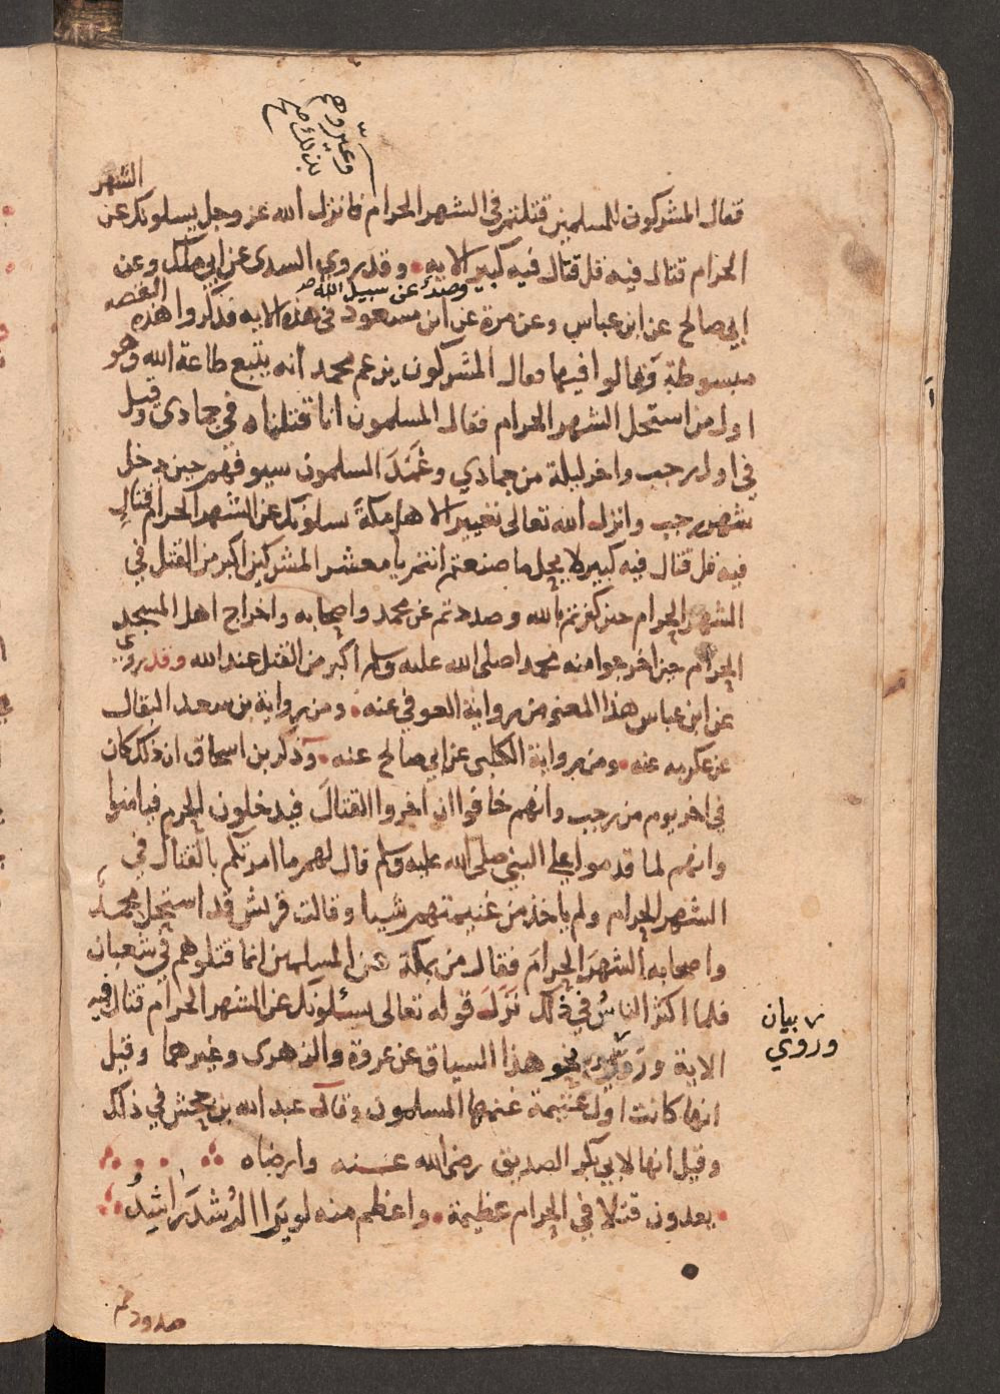 وعيروهم
بذلك صح
فقال المشركون للمسلمين قتلتم في الشهر الحرام فانزل الله عز وجل يسلونك عن الشهر
الحرام قتال فيه قل قتال فيه كبير الايه • وقد روي السدي عن ابي ملك وعن
وصد عن سبيل الله
ابي صالح عن ابن عباس وعن مرة عن ابن مسعود في هذه الايه فذكروا هذه القصه
مبسوطة وقالوا فيها فقال المشركون يزعم محمد انه يتبع طاعة الله وهو
اول من استحل الشهر الحرام فقال المسلمون انا قتلناه في جمادي وقيل
في اول رجب واخر ليلة من جمادي وغمد المسلمون سيوفهم حين دخل
شهر رجب وانزل الله تعالى تعييرا لاهل مكة يسلونك عن الشهر الحرام قتال
فيه قل قتال فيه كبير لا يحل ما صنعتم انتم يا معشر المشركين اكبر من القتل في
الشهر الحرام حين كفرتم بالله وصددتم عن محمد واصحابه واخراج اهل المسجد
الحرام حين اخرجوا منه محمدا صلى الله عليه وسلم اكبر من القتل عند الله وقد روي
عن ابن عباس هذا المعنى من رواية العوفي عنه • ومن رواية بن سعد البقال
عن عكرمه عنه • ومن رواية الكلبي عن ابي صالح عنه • وذكر بن اسحاق ان ذلك كان
في اخر يوم من رجب وانهم خافوا ان اخروا القتال فيدخلون الحرم فيامنوا
وانهم لما قدموا على النبي صلى الله عليه وسلم قال لهم ما امرتكم بالقتال في
الشهر الحرام ولم ياخذ من غنيمتهم شيا وقالت قريش قد استحل محمد
واصحابه الشهر الحرام فقال من بمكة من المسلمين انما قتلوهم في شعبان
فلما اكثر الناس في ذلك نزل قوله تعالى يسئلونك عن الشهر الحرام قتال فيه
الاية وروي نحو هذا السياق عن عروة والزهري وغيرهما وقيل
بيان
وروي
انها كانت اول غنيمة غنمها المسلمون وقال عبد الله بن جحش في ذلك
وقيل انها لابي بكر الصديق رضي الله عنه وارضاه
• يعدون قتلا في الحرام عظيمة • واعظم منه لو يرا الرشد راشد
صدودكم